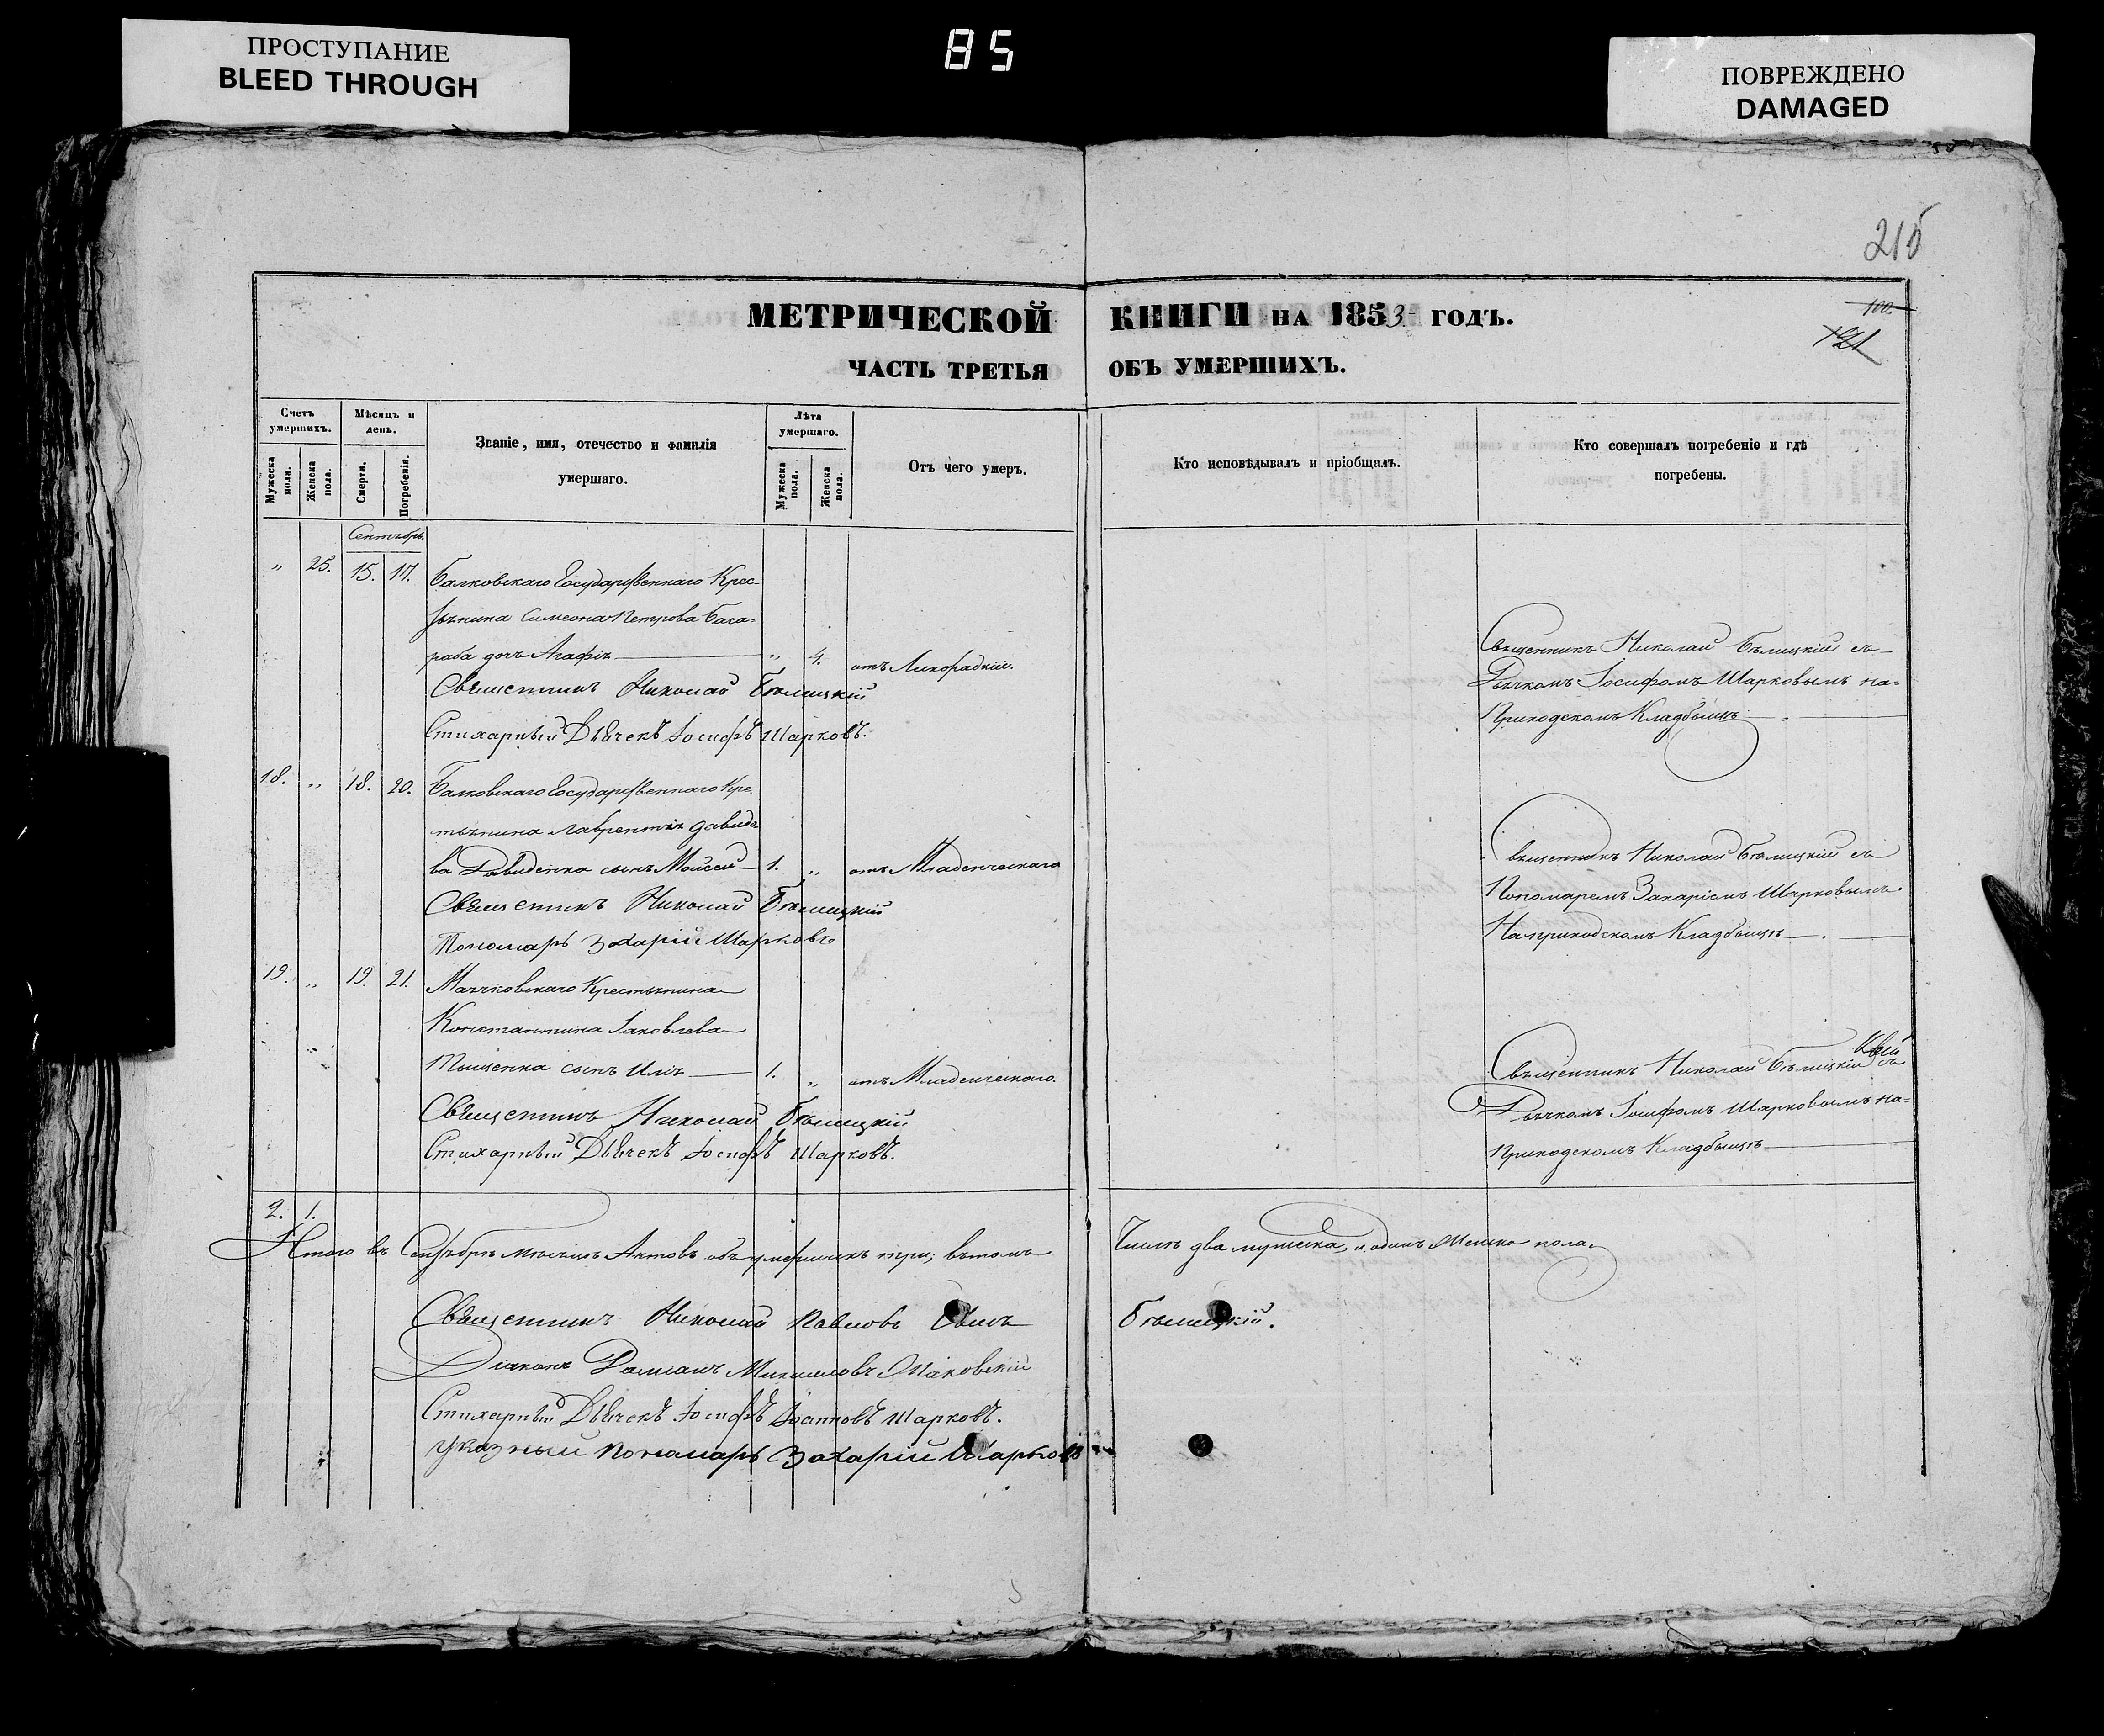 ПРОСТУПАНИЕ
BLEED THROUGH
85
ПОВРЕЖДЕНО
DAMAGED
215
МЕТРИЧЕСКОЙ КНИГИ НА 1853 ГОДЪ.
100.
121
ЧАСТЬ ТРЕТЬЯ ОБЪ УМЕРШИХЪ.
Счетъ умершихъ.
Мужеска пола.
Женска пола.
Мѣсяцъ и день.
Смерти.
Погребенія.
Званіе, имя, отечество и фамилія умершаго.
Лѣта умершаго.
Мужеска пола.
Женска пола.
Отъ чего умеръ.
Кто исповѣдывалъ и пріобщалъ.
Кто совершалъ погребеніе и гдѣ погребены.
Сентябрь.
" 25. 15. 17. Балковскаго Государственнаго Крес-
тьянина Симеона Петрова Баса=
раба дочь Агафія " 4. отъ Лихорадкіи.
Священникъ Николай Бѣлицкій
Стихарный Дьячекъ Іосифъ Шарковъ.
Священникъ Николай Бѣлицкій съ
Дьячкомъ Іосифомъ Шарковымъ на=
Приходскомъ Кладбищѣ
18. " 18. 20. Балковскаго Государственнаго Кре
стьянина Лаврентія Давидо
ва Давиденка сынъ Мойсей 1. " отъ Младенческаго
Священникъ Николай Бѣлицкій
Пономарь Захарій Шарковъ
Священникъ Николай Бѣлицкій съ
Пономаремъ Захаріемъ Шарковымъ
На приходскомъ Кладбищѣ
19. " 19. 21. Крестьянина
Константина Іаковлева
Тищенка сынъ Илія 1. " отъ Младенческаго.
Священникъ Николай Бѣлицкій
Стихарный Дьячекъ Іосифъ Шарковъ.
Священникъ Николай Бѣлицкій съ
Дьячкомъ Іосифомъ Шарковымъ на=
Приходскомъ Кладбищѣ
2. 1.
Итого въ Сентябрѣ мѣсяцѣ Актовъ объ умершихъ три; въ томъ Числѣ два мужеска, и одинъ Женска пола.
Священникъ Николай Павловъ Сынъ Бѣлицкій.
Діаконъ Даміанъ Михаиловъ
Стихарный Дьячекъ Іосифъ Іоанновъ Шарковъ.
Указный Пономарь Захарій Шарковъ